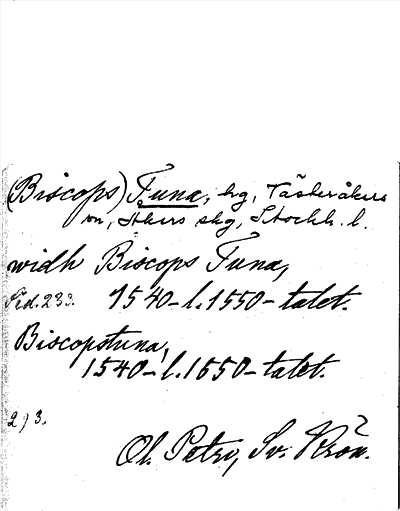 (Biscops) Tuna, hg, Västeråkers
sn, Åkers skg, Stockh. l.
widh Biscops Tuna,
Sid. 233. 1540- l. 1550-talet.
Biscopstuna,
1540- l. 1550-talet.
293.
Ol. Petri, Sv. Krön.